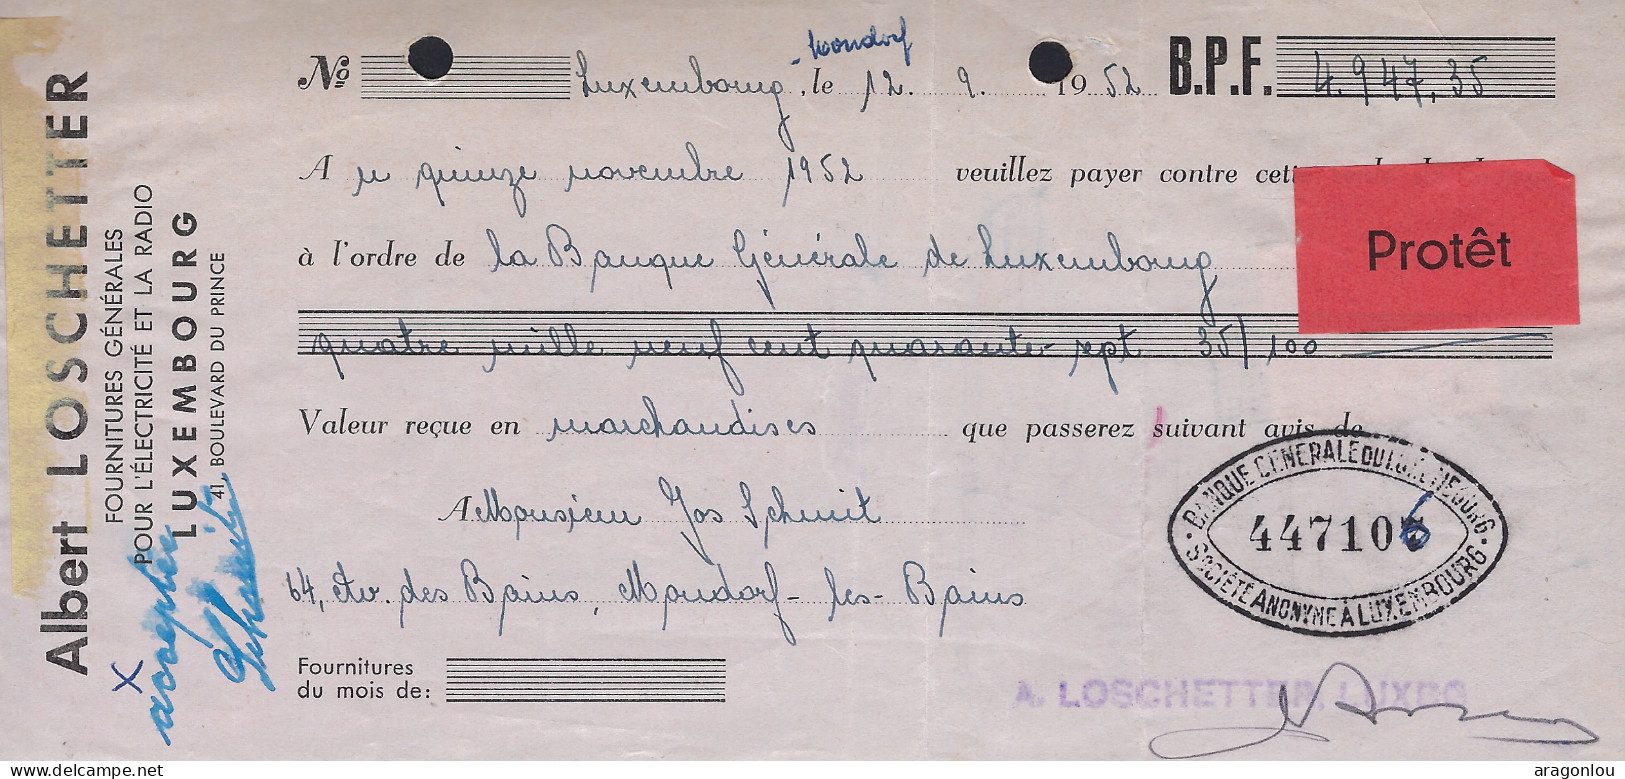 Albert LOSCHETTER
FOURNITURES GÉNÉRALES
POUR L'ÉLECTRICITÉ ET LA RADIO
LUXEMBOURG
41, BOULEVARD DU PRINCE
X
Mondorf
No Luxembourg, le 12. 9. 1952 B.P.F. 4.947,35
A u quinze novembre 1952 veuillez payer contre cette
Protêt
à l'ordre de la Banque Générale de Luxembourg
quatre mille neuf cent quarante-sept 35/100
Valeur reçue en marchandises que passerez suivant avis de
A Monsieur Jos Schmit
64, Av. des Bains, Mondorf-les-Bains
BANQUE GÉNÉRALE DU LUXEMBOURG
4471076
SOCIÉTÉ ANONYME À LUXEMBOURG
Fournitures
du mois de:
A. LOSCHETTER, LUXBG
aragonlou